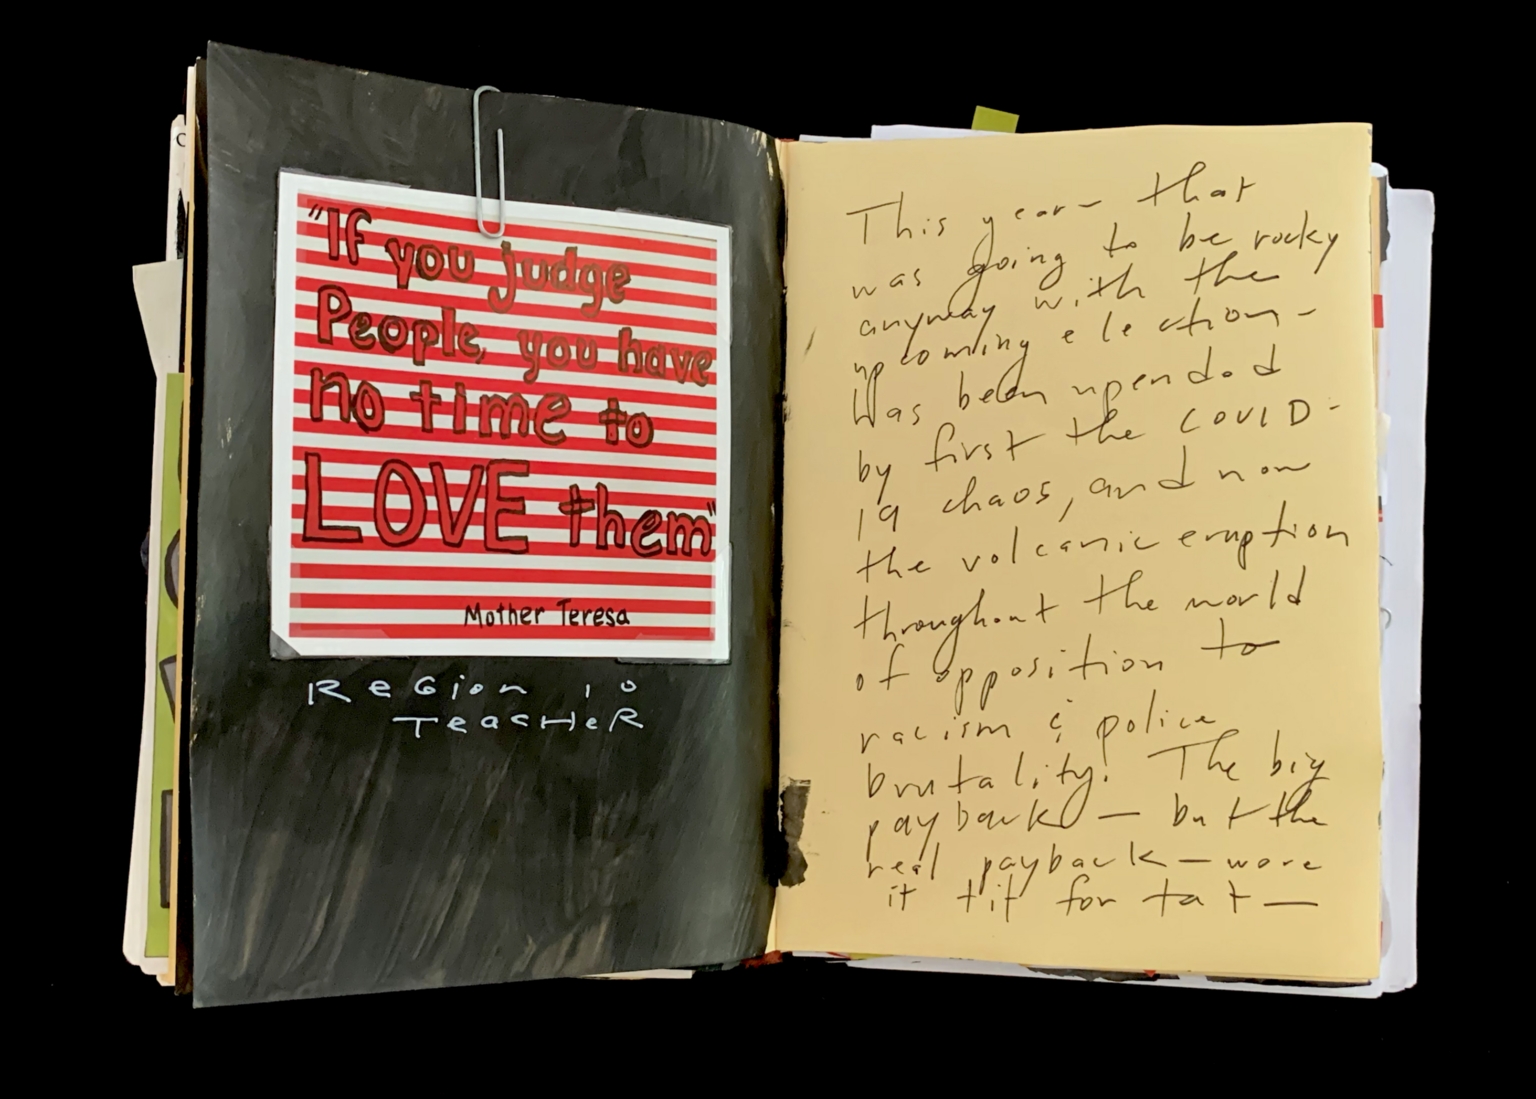 "If you judge
People, you have
no time to
LOVE them"
Mother Teresa
Region 10
Teacher
This year - that
was going to be rocky
anyway with the
upcoming election -
Was been upended
by first the COVID-
19 chaos, and now
the volcanic eruption
throughout the world
of opposition to
racism & police
brutality! The big
payback — but the
real payback — were
it tit for tat —